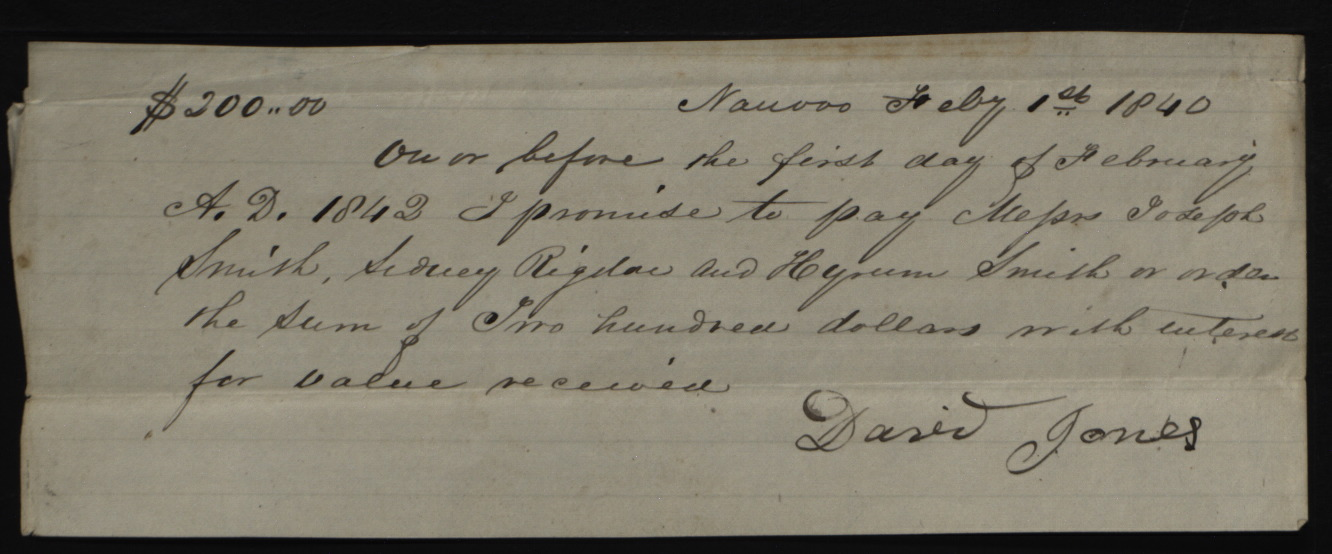 $200..00 Nauvoo Feby 1st 1840
On or before the first day of February
A. D. 1842 I promise to pay Messrs Joseph
Smith, Sidney Rigdon and Hyrum Smith or order
the sum of Two hundred dollars with interest
for value received
David Jones